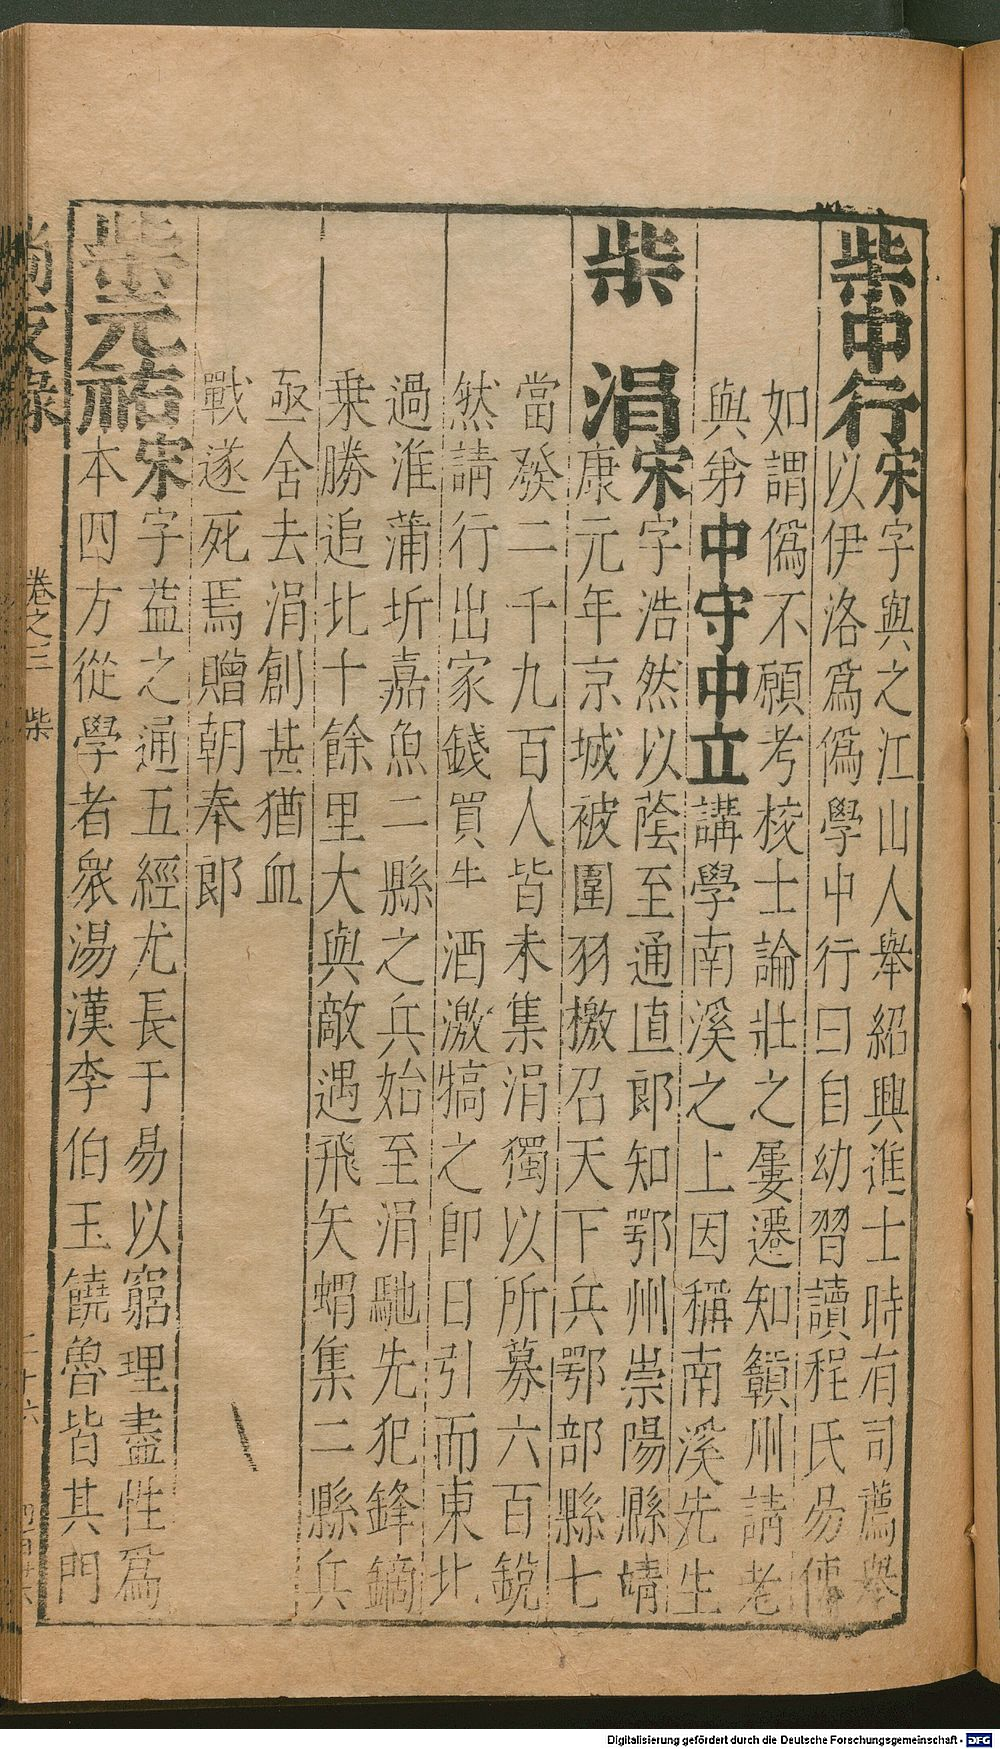 柴中行宋字與之江山人舉紹興進士時有司薦舉
以伊洛爲僞學中行曰自幼習讀程氏易使
如謂僞不願考校士論壯之屢遷知贛州請老
與弟中守中立講學南溪之上因稱南溪先生
柴涓宋字浩然以蔭至通直郎知鄂州崇陽縣靖
康元年京城被圍羽檄召天下兵鄂部縣七
當發二千九百人皆未集涓獨以所募六百銳
然請行出家錢買牛酒激犒之即日引而東北
過淮蒲圻嘉魚二縣之兵始至涓馳先犯鋒鏑
乗勝追北十餘里大與敵遇飛矢蝟集二縣兵
亟舍去涓創甚猶血
戰遂死焉贈朝奉郎
柴元祐宋字益之通五經尤長于易以窮理盡性爲
本四方從學者衆湯漢李伯玉饒魯皆其門
尚友錄 卷之三 柴 二十六
Digitalisierung gefördert durch die Deutsche Forschungsgemeinschaft - DFG